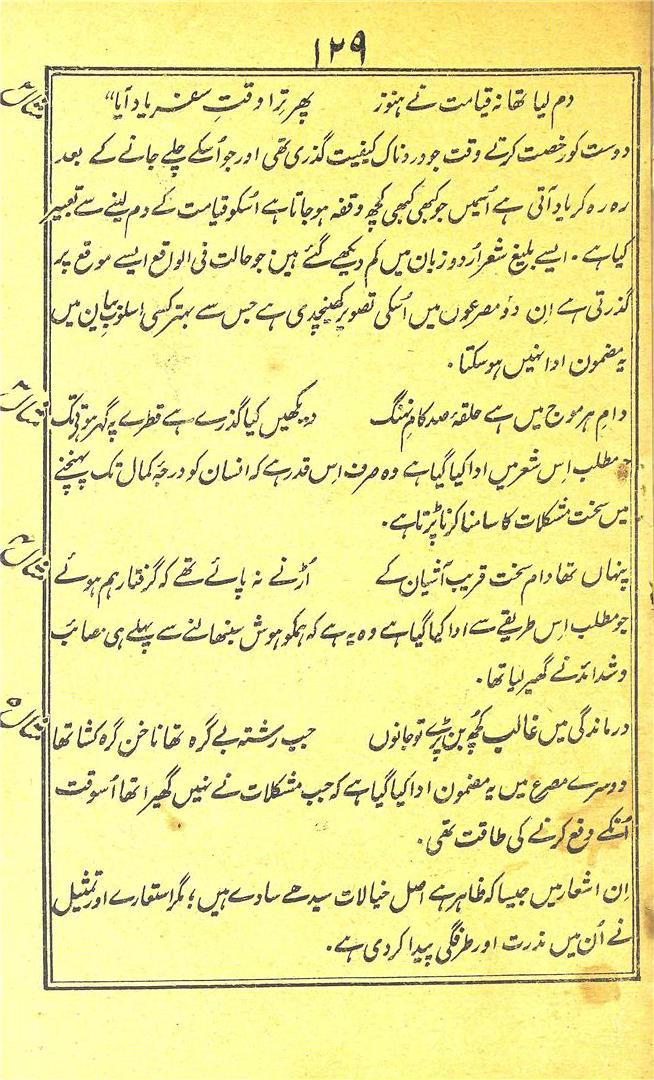 ۱۲۹
دم لیا تھا نہ قیامت نے ہنوز پھر ترا وقتِ سفر یاد آیا“
دوست کو رخصت کرتے وقت جو دردناک کیفیت گذری تھی اور جو اُسکے چلے جانے کے بعد
رہ رہ کر یاد آتی ہے اُسمیں جو کبھی کبھی کچھ وقفہ ہوجاتا ہے اُسکو قیامت کے دم لینے سے تعبیر
کیا ہے ۔ ایسے بلیغ شعر اُردو زبان میں کم دیکھے گئے ہیں؛ جو حالت فی الواقع ایسے موقع پر
گذرتی ہے اِن دو مصرعوں میں اُسکی تصویر کھینچدی ہے جس سے بہتر کسی اسلوبِ بیان میں
یہ مضمون ادا نہیں ہوسکتا ۔
دامِ ہر موج میں ہے حلقۂ صد کامِ نہنگ دیکھیں کیا گذرے ہے قطرے پہ گہر ہوتے تک
جو مطلب اِس شعر میں ادا کیا گیا ہے وہ صرف اِس قدر ہے کہ انسان کو درجۂ کمال تک پہنچنے
میں سخت مشکلات کا سامنا کرنا پڑتا ہے ۔
پنہاں تھا دام سخت قریب آشیان کے اُڑنے نہ پائے تھے کہ گرفتار ہم ہوئے
جو مطلب اِس طریقے سے ادا کیا گیا ہے وہ یہ ہے کہ ہمکو ہوش سنبھالنے سے پہلے ہی مصائب
و شدائد نے گھیر لیا تھا ۔
درماندگی میں غالب کچھ بن پڑے تو جانوں جب رشتہ بے گرہ تھا ناخن گرہ کشا تھا
دوسرے مصرع میں یہ مضمون ادا کیا گیا ہے کہ جب مشکلات نے نہیں گھیرا تھا اُسوقت
اُنکے دفع کرنے کی طاقت تھی ۔
اِن اشعار میں جیسا کہ ظاہر ہے اصل خیالات سیدھے سادے ہیں؛ مگر استعارے اور تمثیل
نے اُن میں ندرت اور طرفگی پیدا کردی ہے ۔